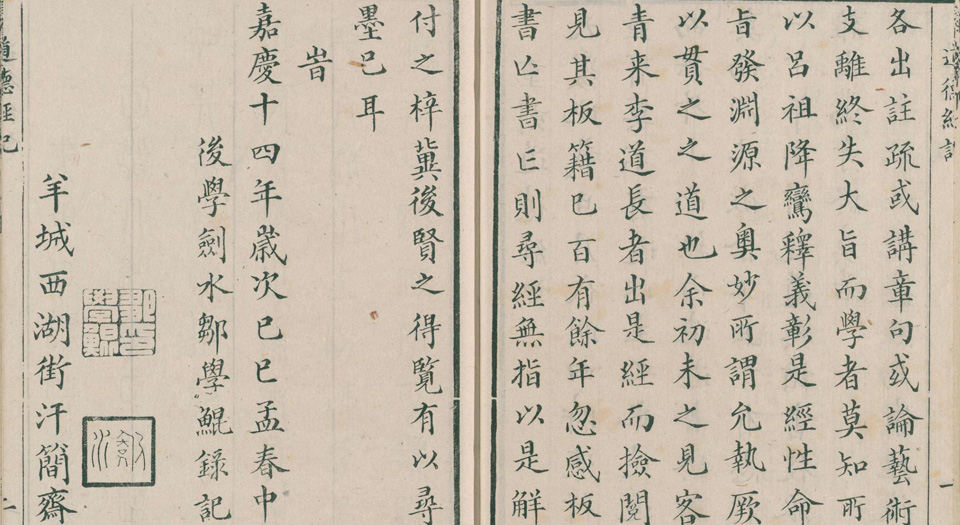 道德經記
各出註疏或講章句或論藝術
支離終失大旨而學者莫知所
以呂祖降鸞釋義彰是經性命
旨發淵源之奧妙所謂允執厥
以貫之之道也余初未之見客
青来李道長者出是經而撿閱
見其板籍已百有餘年忽感板
書亾書亾則尋經無指以是解
付之梓冀後賢之得覽有以尋
墨已耳
旹
嘉慶十四年歲次己巳孟春中
後學劍水鄒學鯤錄記
羊城西湖街汗簡齋
道德經記